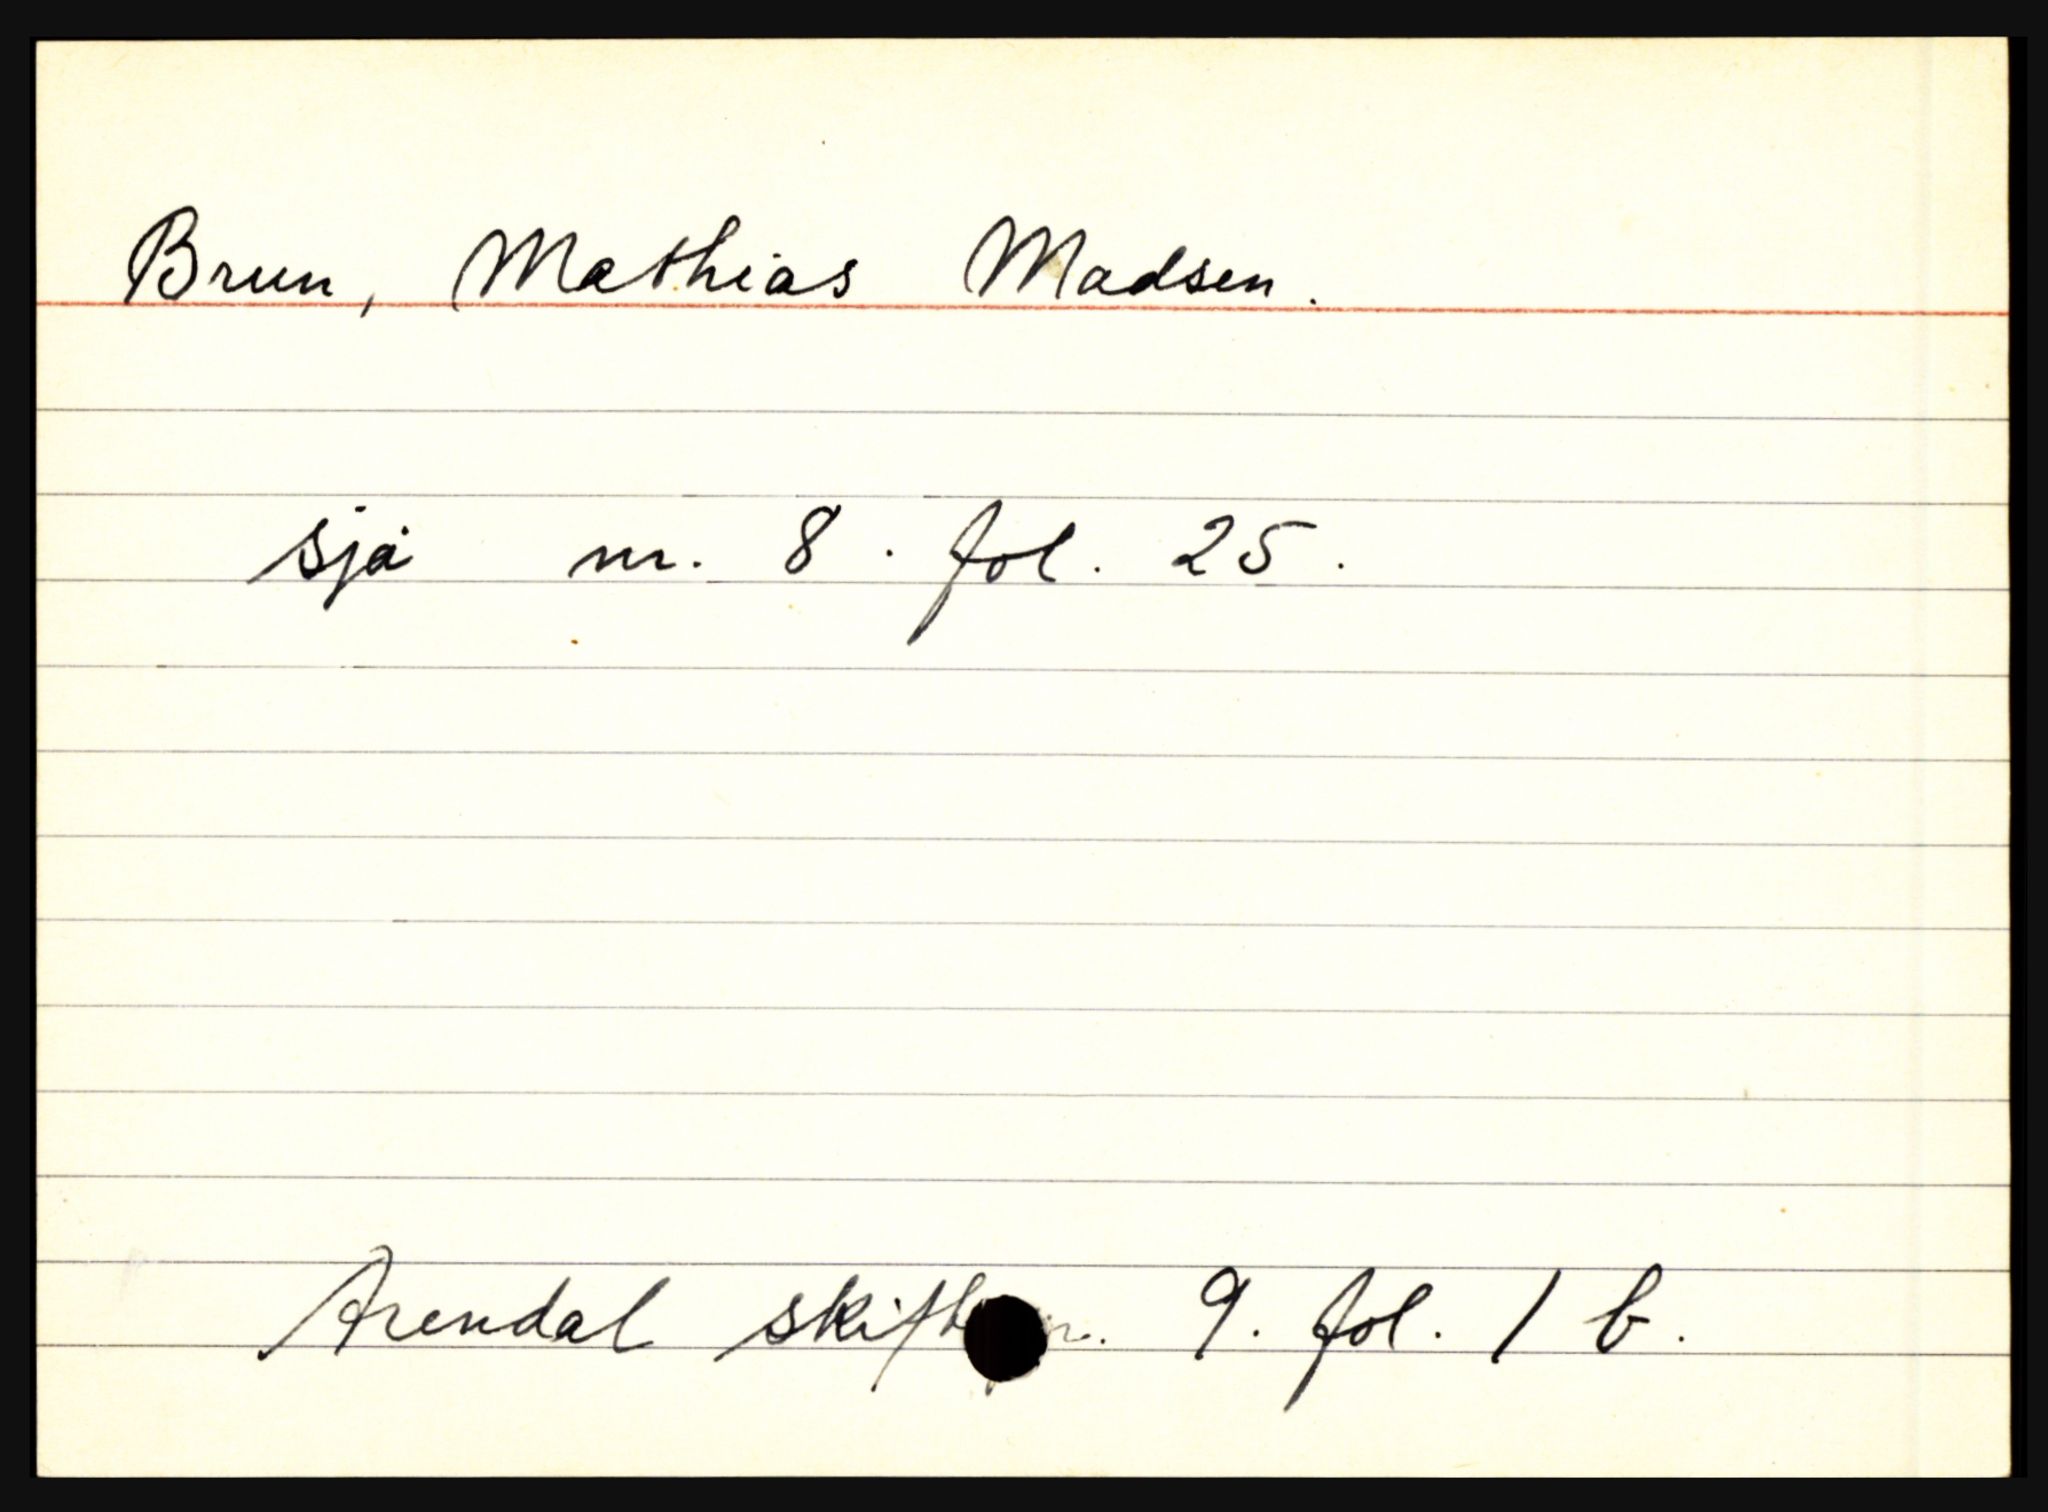 Brun, Mathias Madsen.
sjå nr. 8. fol. 25.
Arendal nr. 9. fol. 1 b.